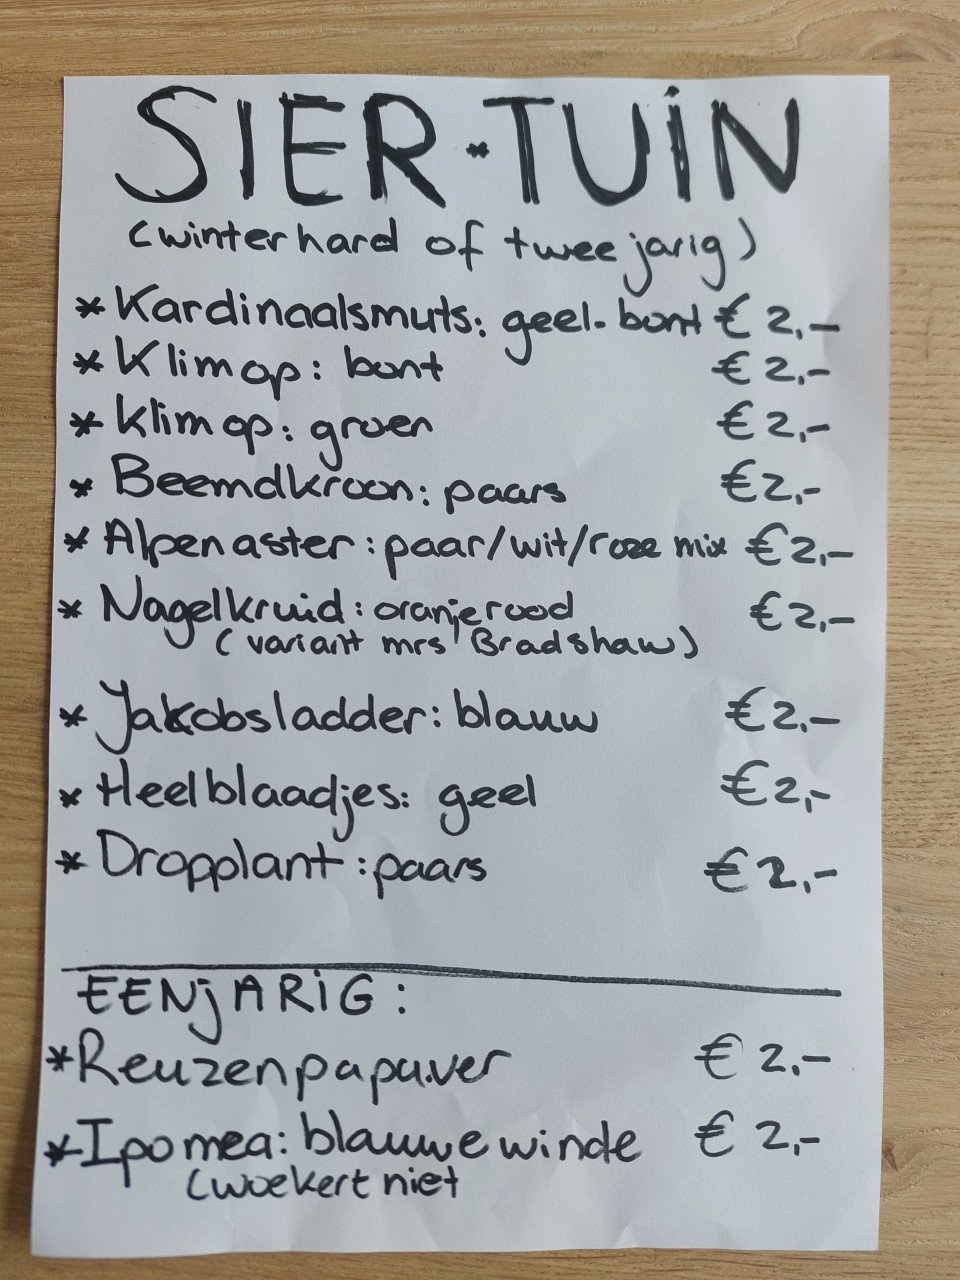 SIER*TUIN
(winterhard of tweejarig)
* Kardinaalsmuts: geel-bont € 2,-
* Klimop: bont € 2,-
* Klimop: groen € 2,-
* Beemdkroon: paars € 2,-
* Alpenaster: paar/wit/roze mix € 2,-
* Nagelkruid: oranjerood € 2,-
(variant mrs Bradshaw)
* Jakobsladder: blauw € 2,-
* Heelblaadjes: geel € 2,-
* Dropplant: paars € 2,-
EENjARiG:
* Reuzenpapaver € 2,-
* Ipomea: blauwe winde € 2,-
(woekert niet